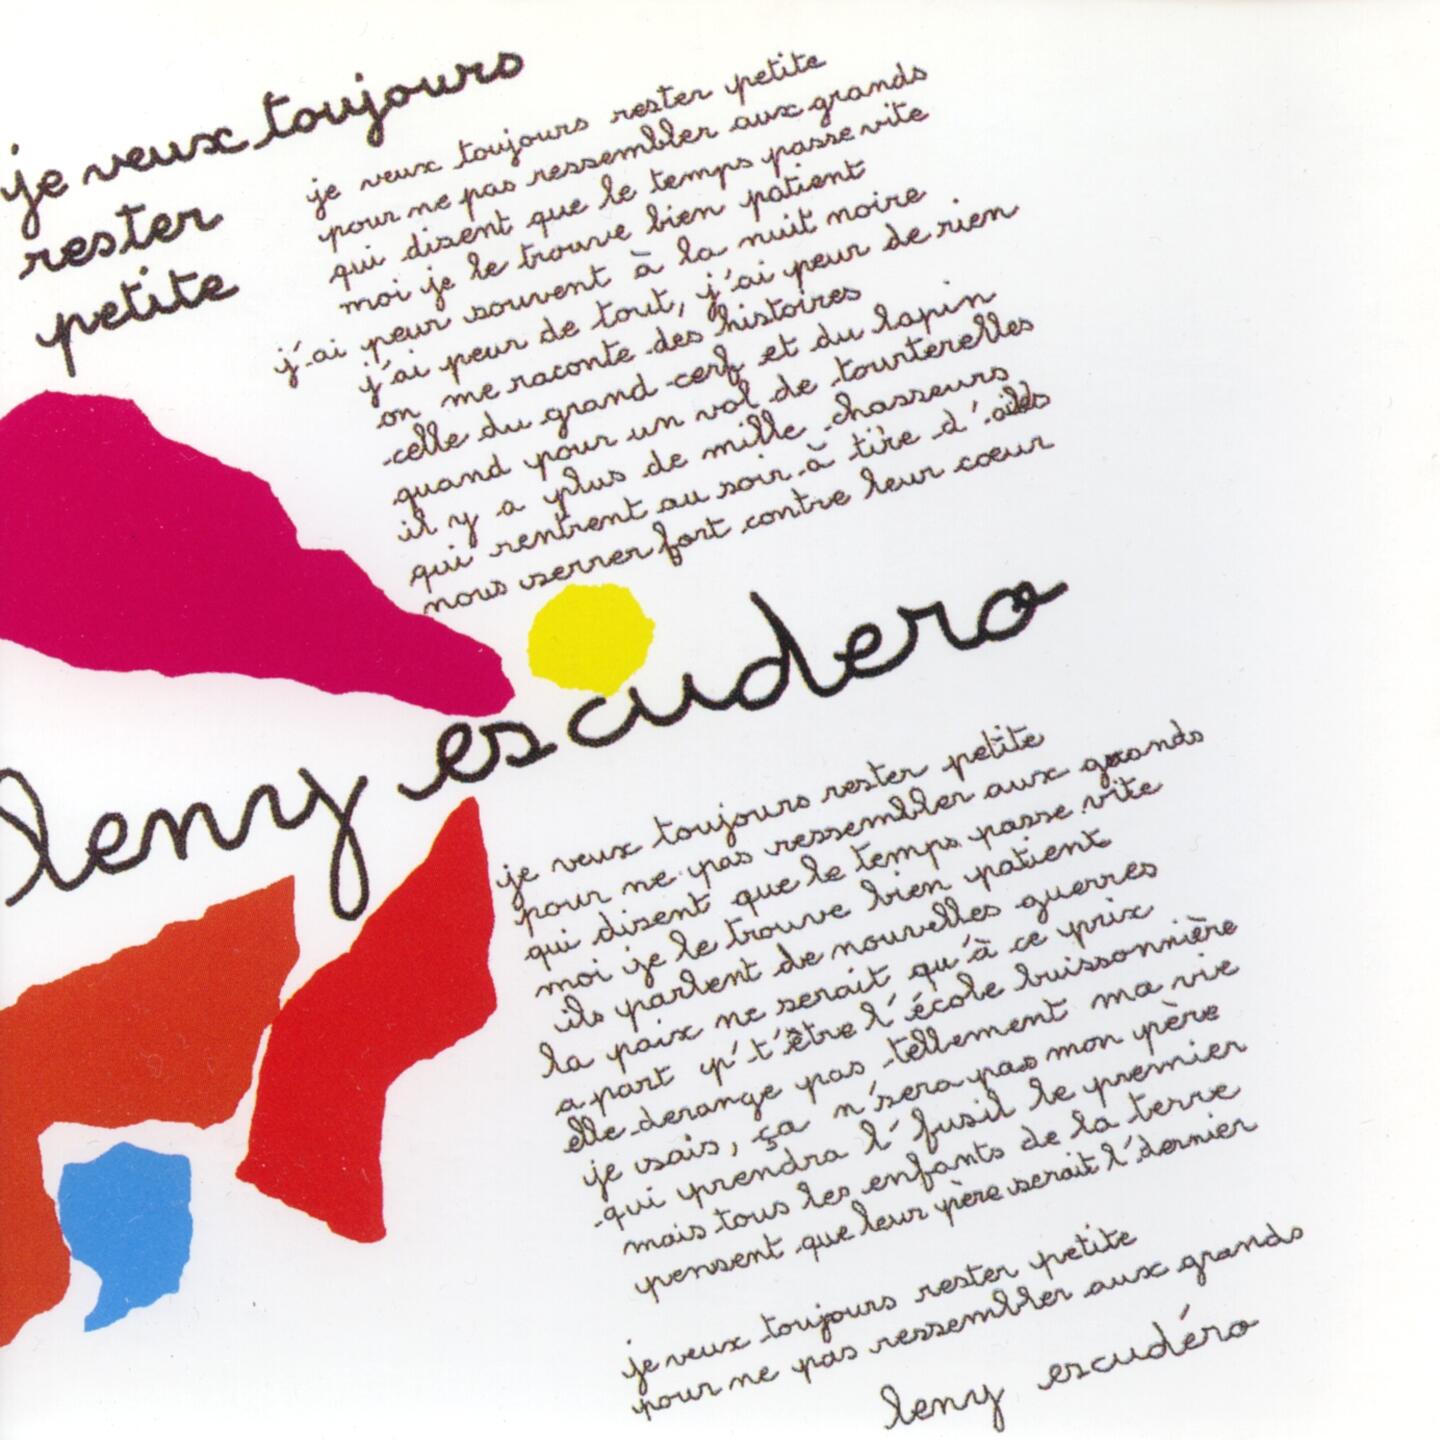 je veux toujours
rester
petite
je veux toujours rester petite
pour ne pas ressembler aux grands
qui disent que le temps passe vite
moi je le trouve bien patient
j'ai peur souvent à la nuit noire
j'ai peur de tout, j'ai peur de rien
on me raconte des histoires
celle du grand cerf et du lapin
quand pour un vol de tourterelles
il y a plus de mille chasseurs
qui rentrent au soir à tire d'ailes
nous serrer fort contre leur cœur
leny escudero
je veux toujours rester petite
pour ne pas ressembler aux grands
qui disent que le temps passe vite
moi je le trouve bien patient
ils parlent de nouvelles guerres
la paix ne serait qu'à ce prix
a part p't'être l'école buissonnière
elle derange pas tellement ma vie
je sais, ça n'sera pas mon père
qui prendra l'fusil le premier
mais tous les enfants de la terre
pensent que leur père serait l'dernier
je veux toujours rester petite
pour ne pas ressembler aux grands
leny escudéro